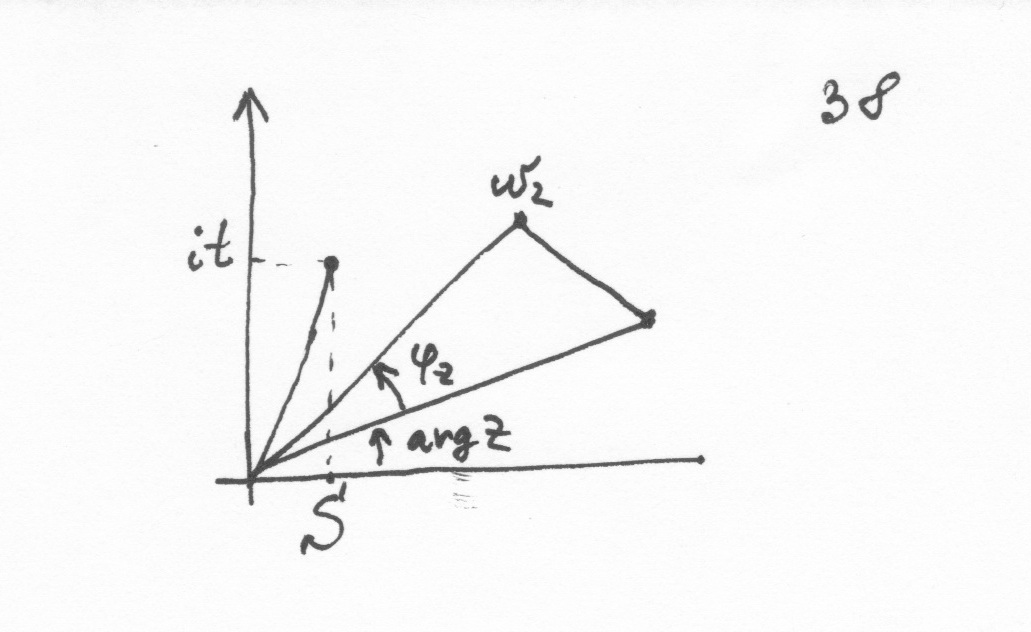 38
w₂
it
φ_z
arg z
S